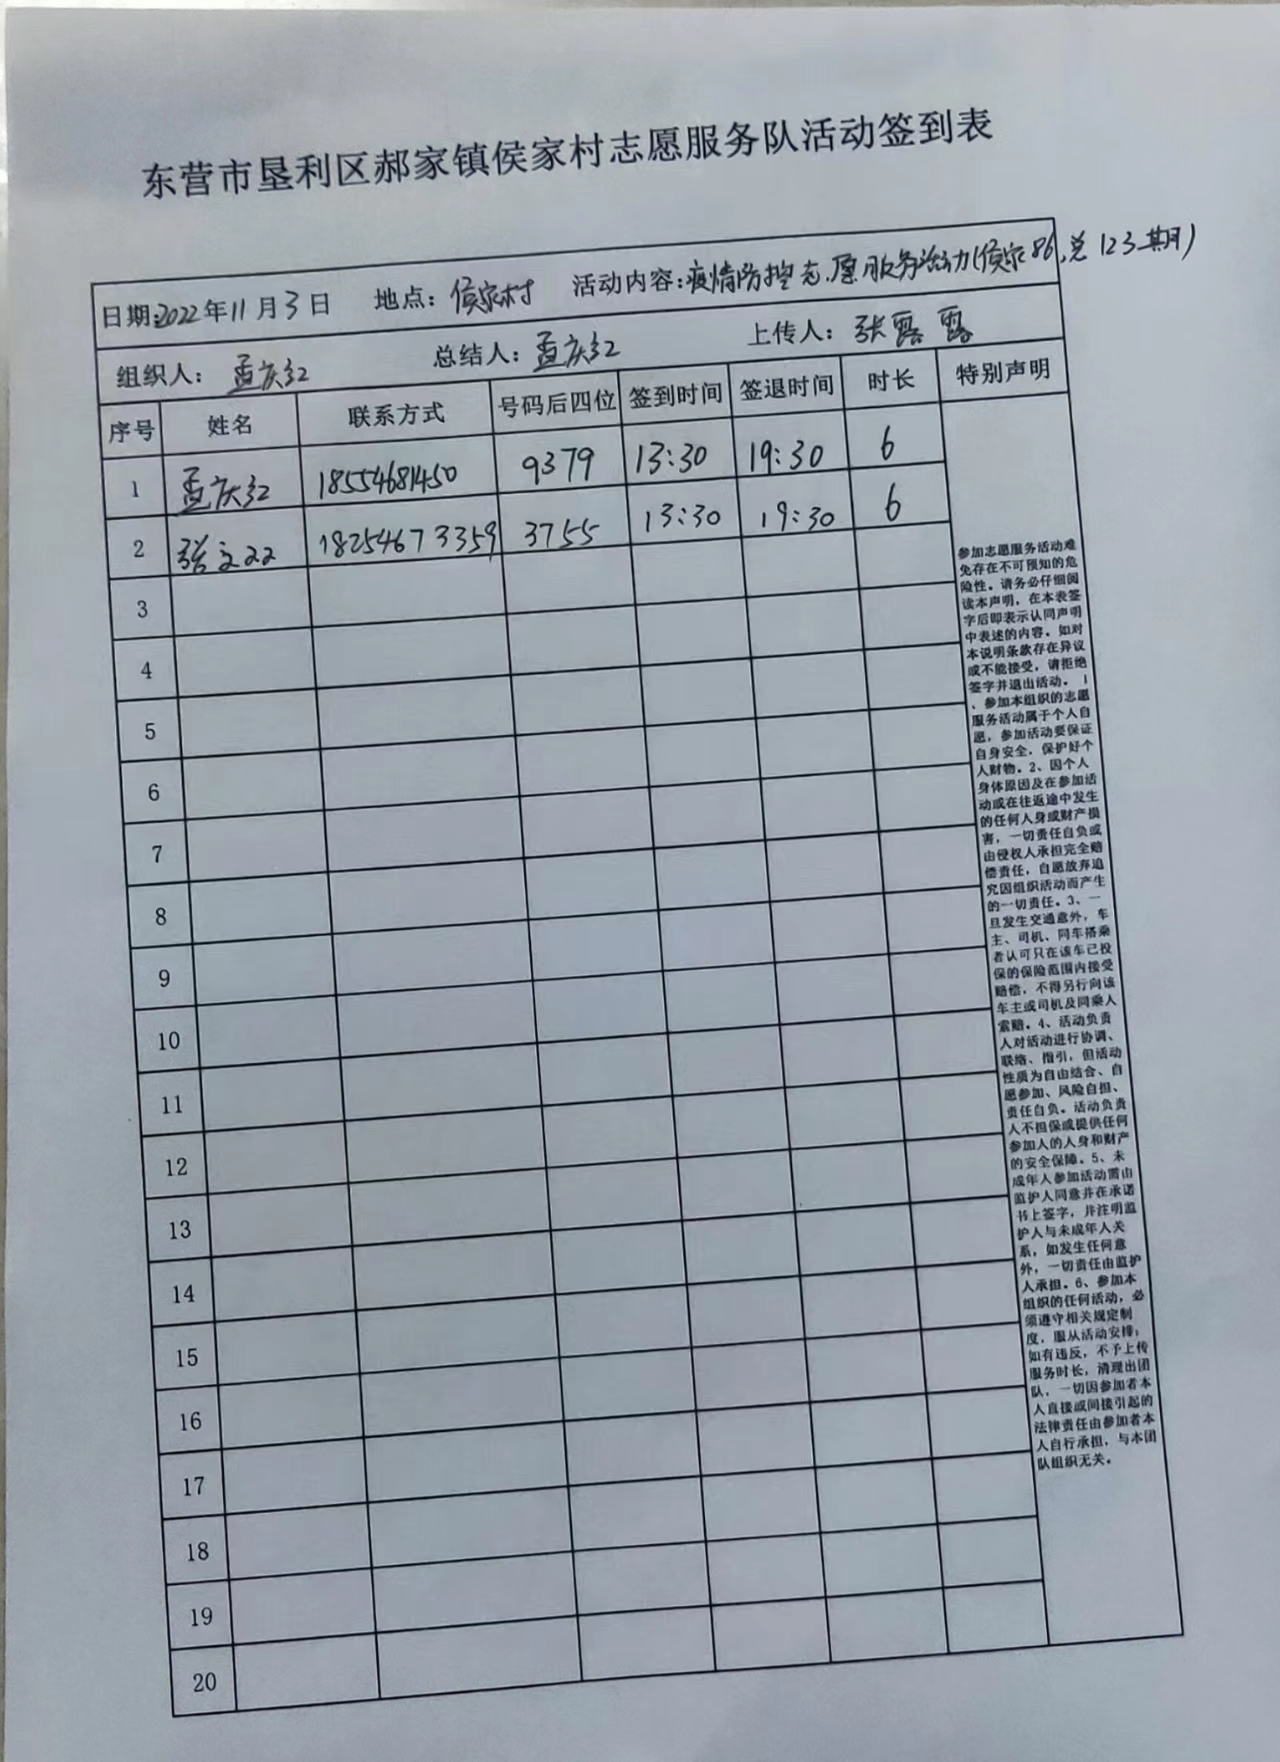 东营市垦利区郝家镇侯家村志愿服务队活动签到表
日期:2022年11月3日 地点:侯家村 活动内容:疫情防控志愿服务活动(侯家86,总123期)
组织人:孟庆红 总结人:孟庆红 上传人:张露露
序号 姓名 联系方式 号码后四位 签到时间 签退时间 时长 特别声明
1 孟庆红 18554681450 9379 13:30 19:30 6
2 18254673359 3755 13:30 19:30 6
3
4
5
6
7
8
9
10
11
12
13
14
15
16
17
18
19
20
参加志愿服务活动难
免存在不可预知的危
险性。请务必仔细阅
读本声明,在本表签
字后即表示认同声明
中表述的内容。如对
本说明条款存在异议
或不能接受,请拒绝
签字并退出活动。1
、参加本组织的志愿
服务活动属于个人自
愿,参加活动要保证
自身安全,保护好个
人财物。2、因个人
身体原因及在参加活
动或在往返途中发生
的任何人身或财产损
害,一切责任自负或
由侵权人承担完全赔
偿责任,自愿放弃追
究因组织活动而产生
的一切责任。3、一
旦发生交通意外,车
主、司机、同车搭乘
者认可只在该车已投
保的保险范围内接受
赔偿,不得另行向该
车主或司机及同乘人
索赔。4、活动负责
人对活动进行协调、
联络、指引,但活动
性质为自由结合、自
愿参加、风险自担、
责任自负。活动负责
人不担保或提供任何
参加人的人身和财产
的安全保障。5、未
成年人参加活动需由
监护人同意并在承诺
书上签字,并注明监
护人与未成年人关
系,如发生任何意
外,一切责任由监护
人承担。6、参加本
组织的任何活动,必
须遵守相关规定制
度,服从活动安排;
如有违反,不予上传
服务时长,清理出团
队,一切因参加者本
人直接或间接引起的
法律责任由参加者本
人自行承担,与本团
队组织无关。